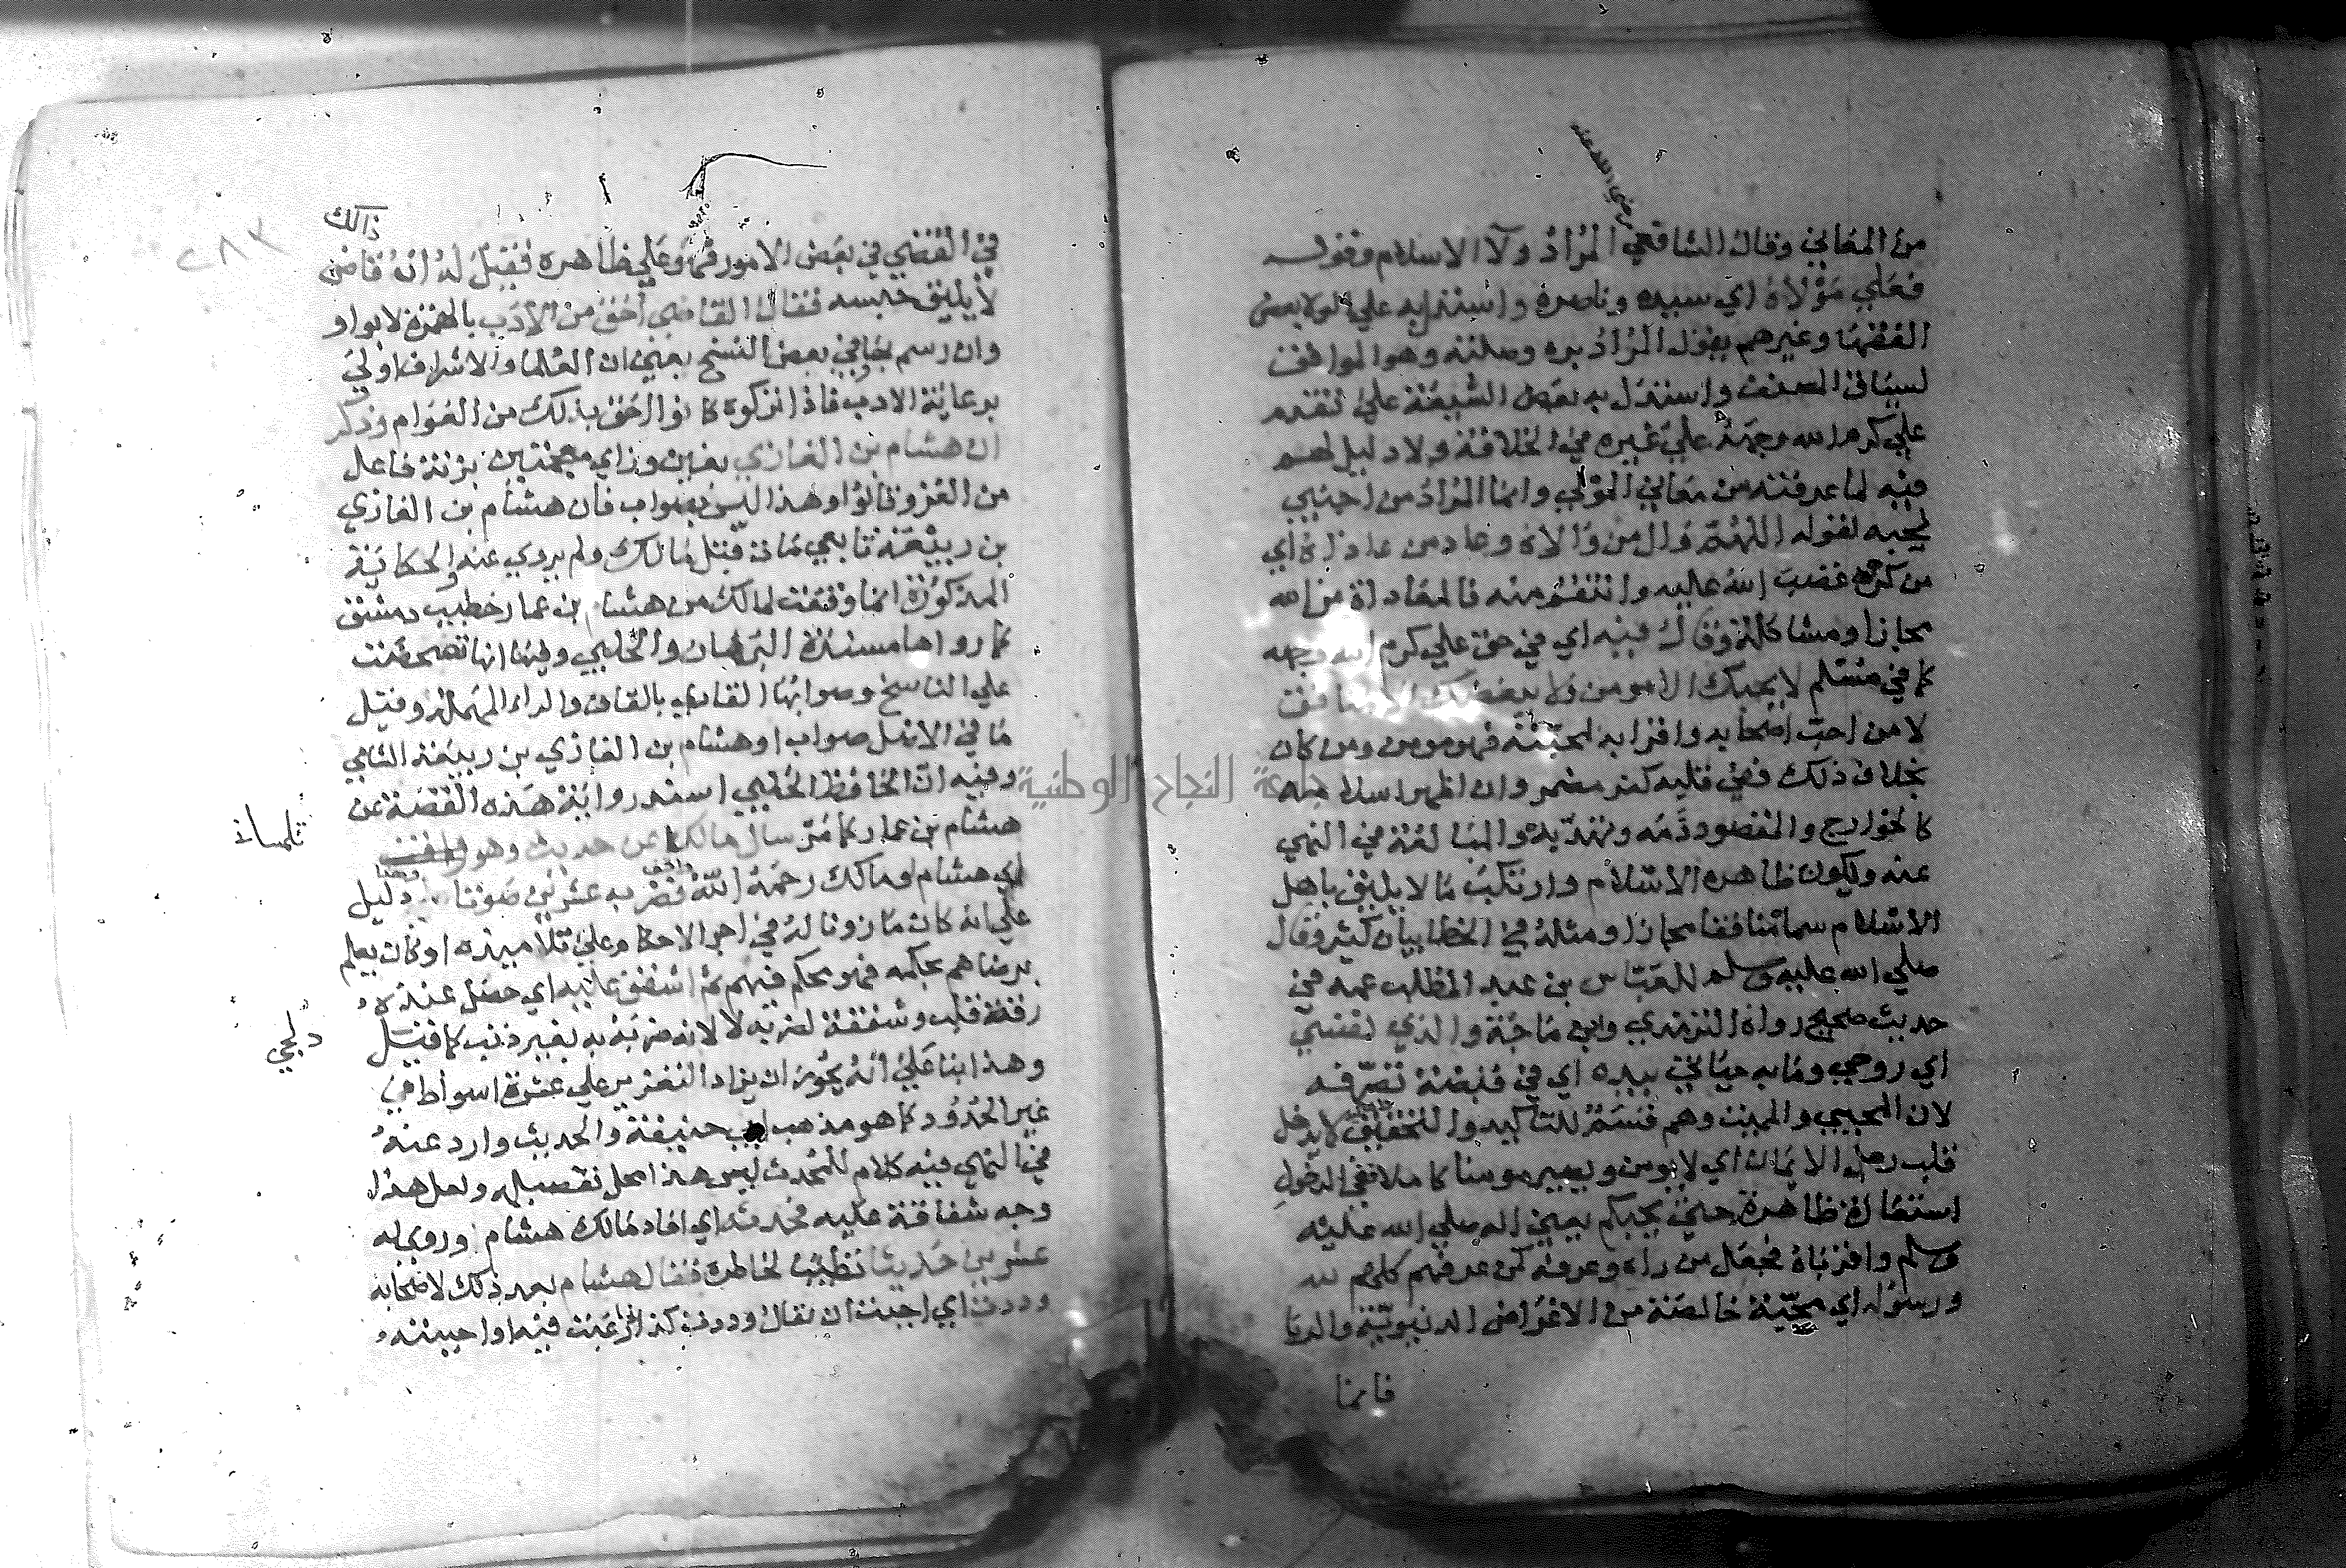 رضي الله عنه
من المعاني وقال الشافعي المراد ولآ الاسلام وقوله
فعلي مولاه اي سيده وناصره واستدل به علي الولا بعض
الفقها وغيرهم بقول المراد بره وصلته وهو الموافق
لسياق المصنف واستدل به بعض الشيعة علي تقدم
علي كرم الله وجهه علي غيره في الخلافة ولا دليل لهم
فيه لما عرفته من معاني المولي وانما المراد من احبني
يحبه لقوله اللهم وال من والاه وعاد من عاداه اي
من كرهه غضب الله عليه وانتقم منه فالمعاداة من الله
مجازا ومشاكلة وقال فيه اي في حق علي كرم الله وجهه
كما في مسلم لا يحبك الا مومن ولا يبغضك الا منافق
لا من احب اصحابه واقرابه لمحبته فهو مومن ومن كان
بخلاف ذلك ففي قلبه كفر مضمر وان اظهر اسلامه
كالخوارج والمقصود ذمه وتهديده والمبالغة في النهي
عنه وليكون ظاهره الاسلام وارتكب ما لا يليق باهل
الاسلام سماه منافقا مجازا ومثله في الخطابيات كثير وقال
صلي الله عليه وسلم للعباس بن عبد المطلب عمه في
حديث صحيح رواه الترمذي وابن ماجة والذي نفسي
اي روحي وما به حياتي بيده اي في قبضة تصرفه
لان المحيي والمميت وهم قسم للتاكيد والتحقيق لا يدخل
قلب رجل الايمان اي لا يومن ويصير مومنا كاملا ففي الدخول
استعارة ظاهرة حتي يحبكم يعني اله صلي الله عليه
وسلم واقرباه فجعل من راه وعرفه كمن عرفهم كلهم لله
ورسوله اي محبة خالصة من الاغراض الدنيوية والريا
فانما
ذالك
في القضي في بعض الامور فهو علي ظاهره فقيل له انه قاض
لا يليق حبسه فقال القاضي احق من الادب بالهمزة لا بواو
وان رسم بها في بعض النسخ يعني ان العلما والاشراف اولي
برعاية الادب فاذا تركوه كانوا احق بذلك من العوام وذكر
ان هشام بن الغازي بغين وزاي معجمتين بزنة فاعل
من الغزو قالوا وهذا ليس بصواب فان هشام بن الغازي
بن ربيعة تابعي مات قبل مالك ولم يروي عنه والحكاية
المذكورة انما وقعت لمالك من هشام بن عمار خطيب دمشق
كما رواها مسندة البرهان والحلبي وفيها انها تصحفت
علي الناسخ وصوابها القاري بالقاف والراء المهملة وقيل
ما في الاصل صواب او هشام بن الغازي بن ربيعة الشامي
وفيه ان الحافظ الحلبي اسند رواية هذه القصة عن
هشام بن عمار كما مر سال مالكا عن حديث وهو واقف
تلمساني
اي هشام ومالك رحمه الله فضربه عشرين صوتا وهذا دليل
علي انه كان ماذونا له في اجرا الاحكام وعلي تلاميذه او كان يعلم
برضاهم بحكمه فهو محكم فيهم ثم اشفق عليه اي حصل عنده
رقة قلب وشفقة لضربه لا لانه ضربه به بغير ذنب كما قيل
دلجي
وهذا بنا علي انه يجوز ان يزاد التعزير علي عشرة اسواط في
غير الحدود كما هو مذهب ابي حنيفة والحديث وارد عنه
في النهي فيه كلام للمحدث ليس هذا محل تفصيله ولعل هذا
وجه شفاقة عليه فحدثه اي افاد مالك هشام وروي له
عشرين حديثا تطييبا لخاطره فقال هشام بعد ذلك لاصحابه
وددت اي احببت ان يقال وددت كذا اذا رغبت فيه او احببته